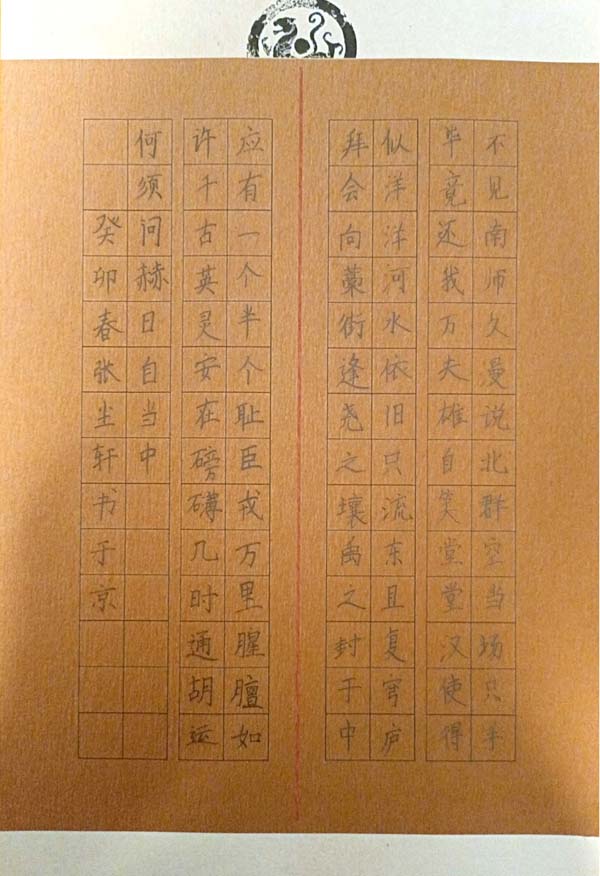 不见南师久漫说北群空当场只手
毕竟还我万夫雄自笑堂堂汉使得
似洋洋河水依旧只流东且复穹庐
拜会向藁街逢尧之壤禹之封于中
应有一个半个耻臣戎万里腥膻如
许千古英灵安在磅礴几时通胡运
何须问赫日自当中
癸卯春张尘轩书于京